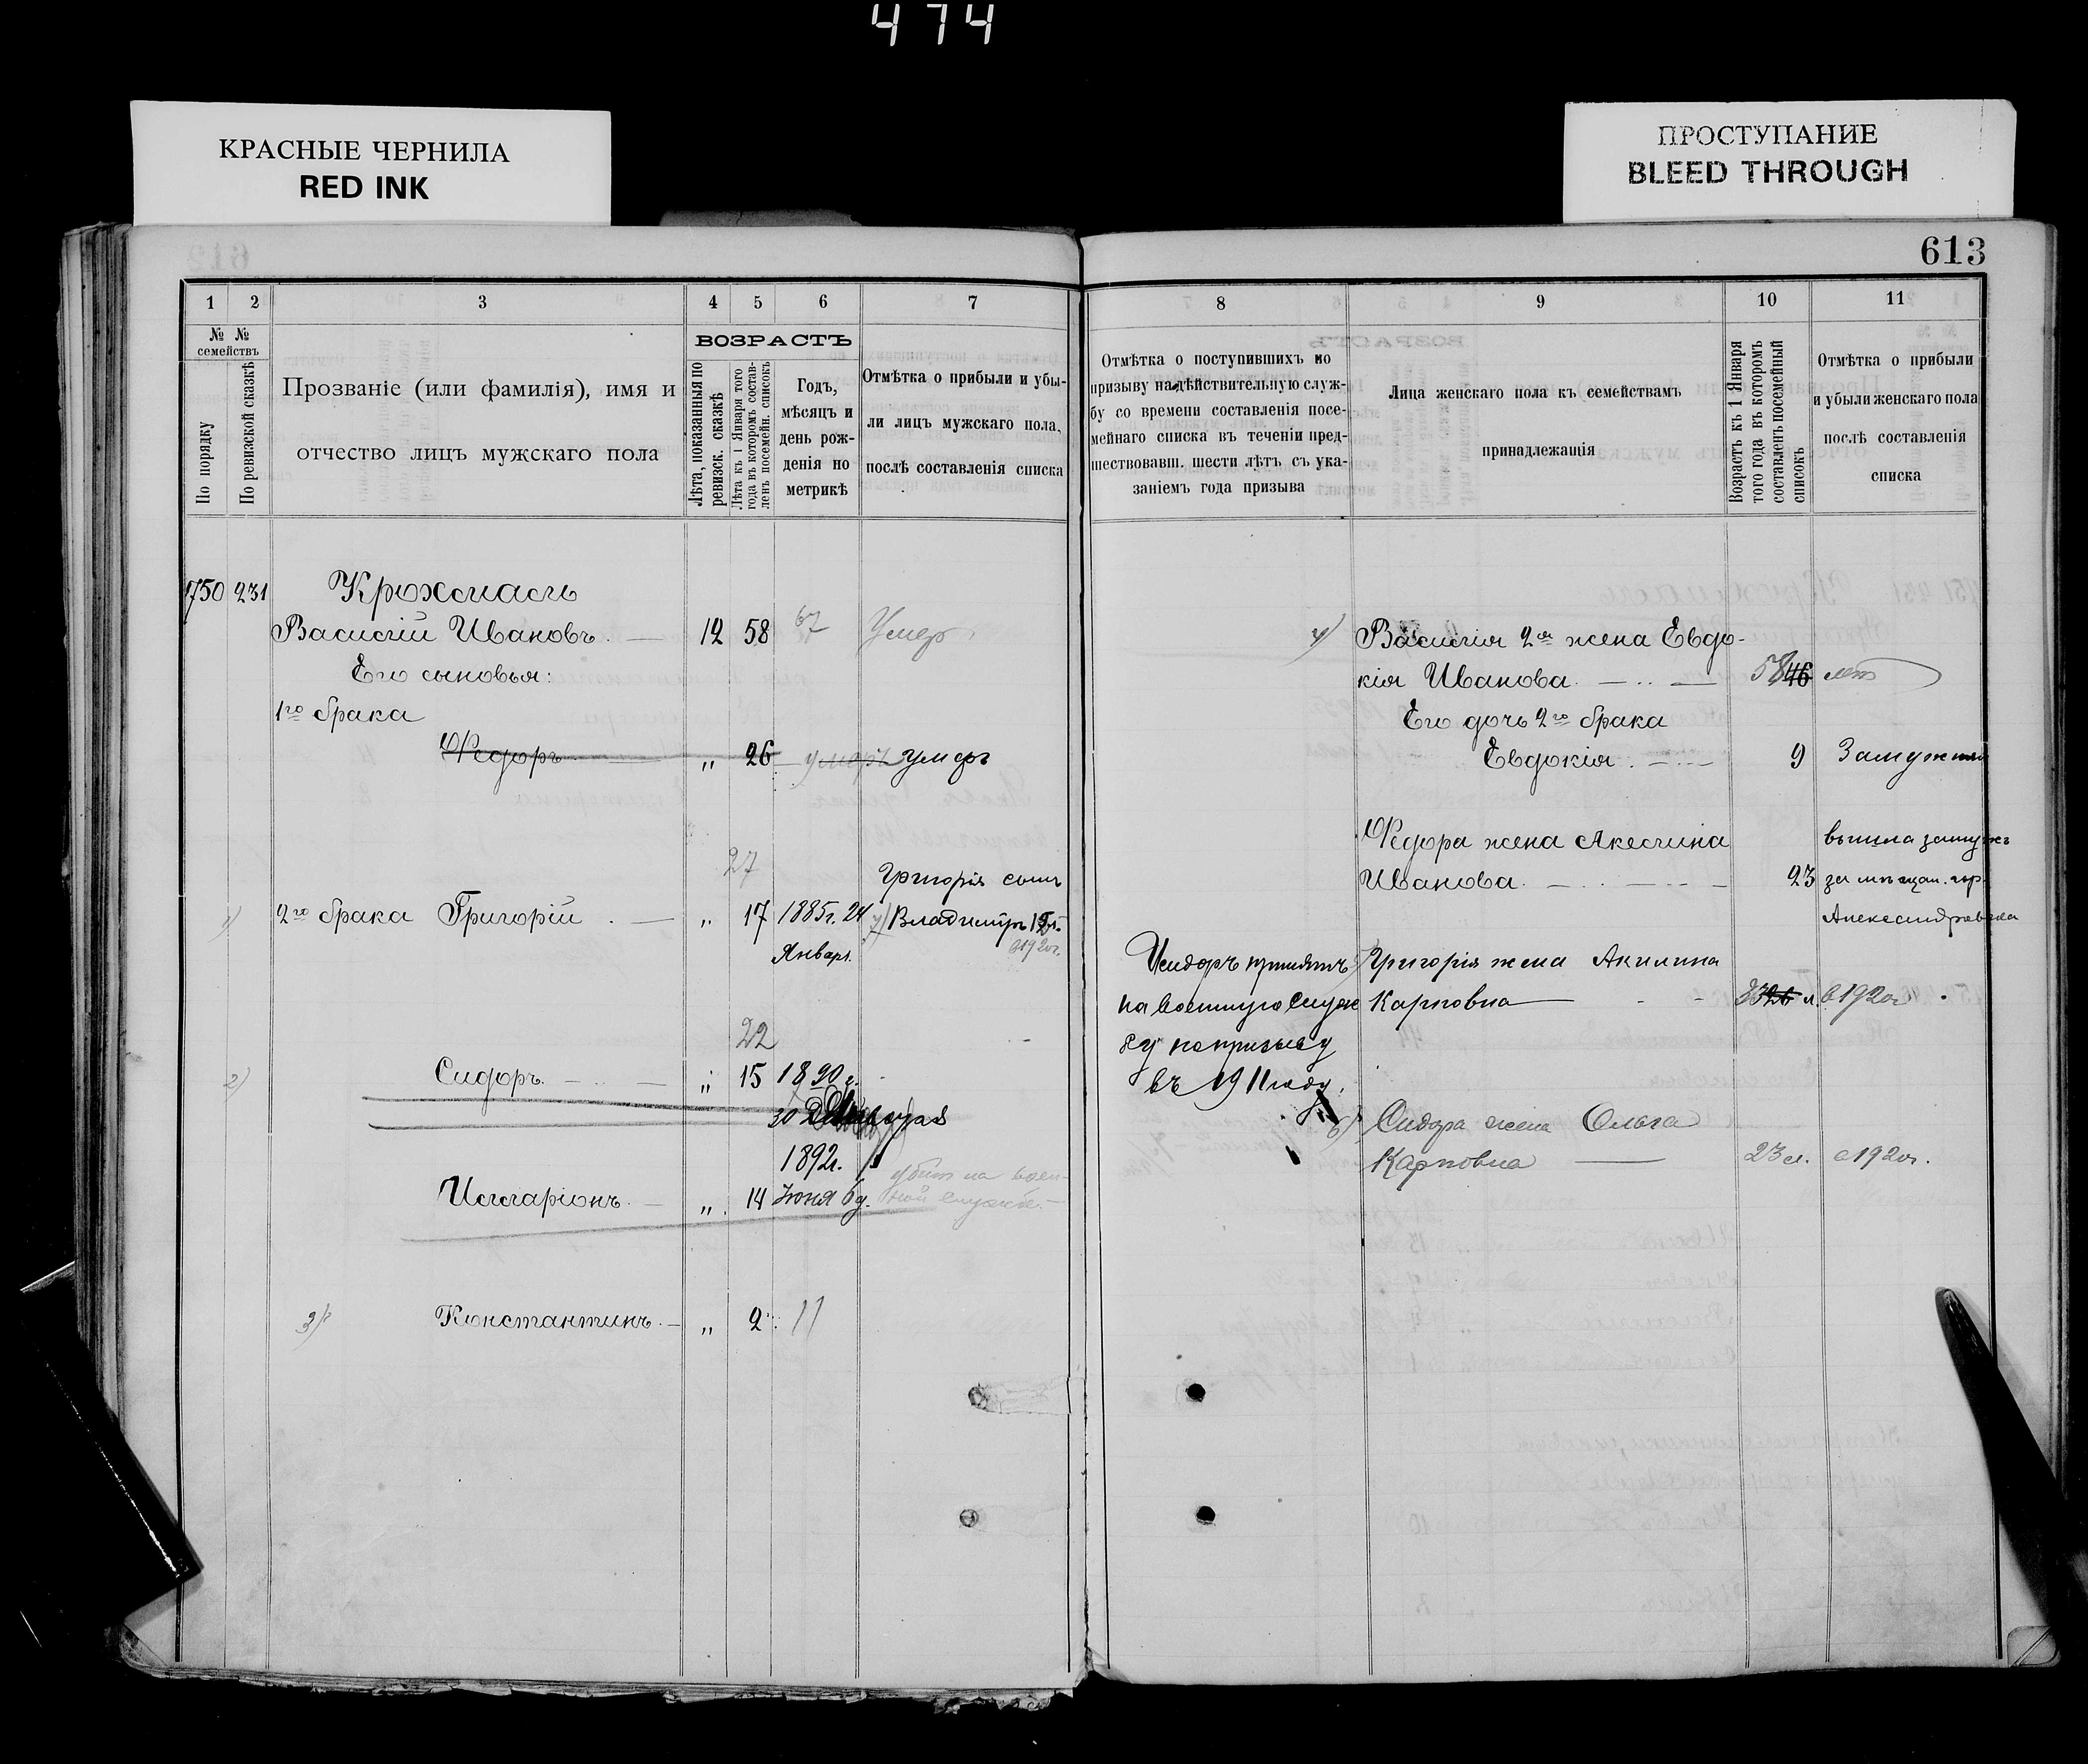 474
КРАСНЫЕ ЧЕРНИЛА
RED INK
ПРОСТУПАНИЕ
BLEED THROUGH
613
1 2 3 4 5 6 7
№ № семействъ
По порядку
По ревизской сказкѣ
Прозваніе (или фамилія), имя и
отчество лицъ мужскаго пола
ВОЗРАСТЪ
Лѣта, показанныя по
ревизск. сказкѣ
Лѣта къ 1 Января того
года въ которомъ состав-
ленъ посемейн. списокъ
Годъ,
мѣсяцъ и
день рож-
денія по
метрикѣ
Отмѣтка о прибыли и убы-
ли лицъ мужскаго пола,
послѣ составленія списка
1750 231 Крохмаль
Василій Ивановъ. 12 58 67 Умер
Его сыновья:
1го брака
Ѳедоръ „ 26 умеръ умеръ
27
Григорія сынъ
1) 2го брака Григорій „ 17 1885г. 24 7) Владиміръ
Январ. в 1920г.
22
2) Сидоръ. „ 15 1890 г.
30
1892г.
убит на воен-
Илларіонъ „ 14 Июня 6д. ной службе.
3) Константинъ „ 2 11
8 9 10 11
Отмѣтка о поступившихъ по
призыву на дѣйствительную служ-
бу со времени составленія посе-
мейнаго списка въ теченіи пред-
шествовавш. шести лѣтъ съ ука-
заніемъ года призыва
Лица женскаго пола къ семействамъ
принадлежащія
Возрастъ къ 1 Января
того года въ которомъ
составленъ посемейный
списокъ
Отмѣтка о прибыли
и убыли женскаго пола
послѣ составленія
списка
4) Василія 2ая жена Евдо-
кія Иванова. 58 46 лет
Его дочь 2го брака
Евдокія. 9 Замужняя
Ѳедора жена Акелина вышла замужъ
Иванова. 23 за мѣщан. гор.
Александровска
Исидоръ принятъ
на военную служ
бу по призыву
въ 1911 году.
Григорія жена Акилина
Карповна в 1920г.
6) Сидора жена Ольга
Карповна 23 л. в 1920г.